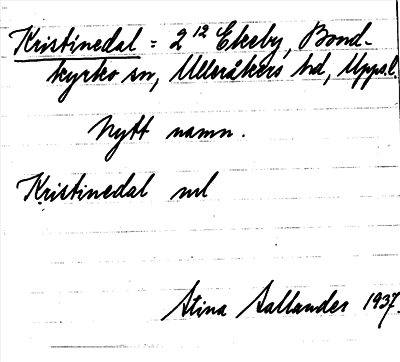 Kristinedal = 2¹² Ekeby, Bond-
kyrko sn, Ulleråkers hd, Uppsl.
Nytt namn.
Kristinedal ml
Stina Sallander 1937.